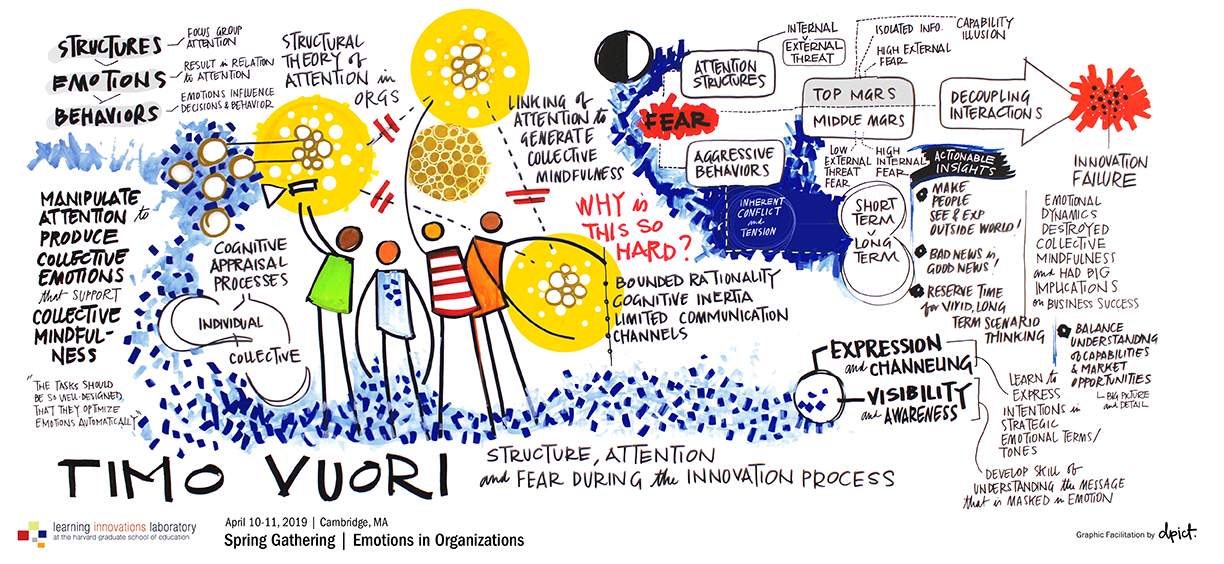 STRUCTURES
FOCUS GROUP
ATTENTION
EMOTIONS
RESULT in RELATION
to ATTENTION
BEHAVIORS
EMOTIONS INFLUENCE
DECISIONS & BEHAVIOR
STRUCTURAL
THEORY of
ATTENTION in
ORGS
MANIPULATE
ATTENTION to
PRODUCE
COLLECTIVE
EMOTIONS
that SUPPORT
COLLECTIVE
MINDFUL-
NESS
"THE TASKS SHOULD
BE SO WELL-DESIGNED
THAT THEY OPTIMIZE
EMOTIONS AUTOMATICALLY"
COGNITIVE
APPRAISAL
PROCESSES
INDIVIDUAL
COLLECTIVE
LINKING of
ATTENTION to
GENERATE
COLLECTIVE
MINDFULNESS
WHY is
THIS SO
HARD?
BOUNDED RATIONALITY
COGNITIVE INERTIA
LIMITED COMMUNICATION
CHANNELS
ATTENTION
STRUCTURES
INTERNAL
EXTERNAL
THREAT
FEAR
AGGRESSIVE
BEHAVIORS
INHERENT
CONFLICT
and
TENSION
ISOLATED INFO.
CAPABILITY
ILLUSION
HIGH EXTERNAL
FEAR
TOP MGRS
MIDDLE MGRS
LOW
EXTERNAL
THREAT
FEAR
HIGH
INTERNAL
FEAR
SHORT
TERM
LONG
TERM
DECOUPLING
INTERACTIONS
INNOVATION
FAILURE
ACTIONABLE
INSIGHTS
MAKE
PEOPLE
SEE & EXP
OUTSIDE WORLD!
BAD NEWS is
GOOD NEWS!
RESERVE TIME
for VIVID, LONG
TERM SCENARIO
THINKING
EMOTIONAL
DYNAMICS
DESTROYED
COLLECTIVE
MINDFULNESS
and HAD BIG
IMPLICATIONS
on BUSINESS SUCCESS
BALANCE
UNDERSTANDING
of CAPABILITIES
& MARKET
OPPORTUNITIES
BIG PICTURE
and DETAIL
EXPRESSION
and CHANNELING
VISIBILITY
and AWARENESS
LEARN to
EXPRESS
INTENTIONS in
STRATEGIC
EMOTIONAL TERMS/
TONES
DEVELOP SKILL of
UNDERSTANDING the MESSAGE
that is MASKED in EMOTION
TIMO VUORI
STRUCTURE, ATTENTION
and FEAR DURING the INNOVATION PROCESS
learning innovations laboratory
at the harvard graduate school of education
April 10-11, 2019 | Cambridge, MA
Spring Gathering | Emotions in Organizations
Graphic Facilitation by dpict.